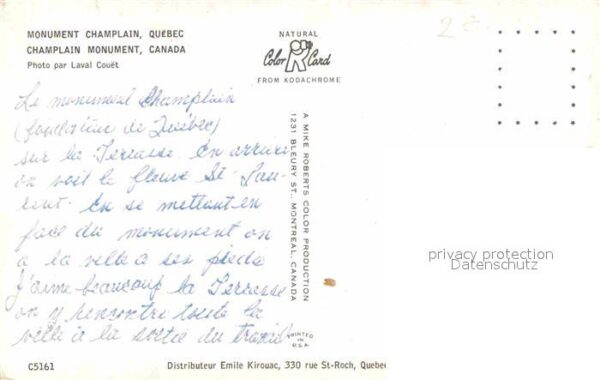 MONUMENT CHAMPLAIN, QUÉBEC
CHAMPLAIN MONUMENT, CANADA
Photo par Laval Couët
NATURAL
Color Card
FROM KODACHROME
2€
Le monument Champlain
(fondateur de Québec)
sur la Terrasse. En arrière
on voit le fleuve St-Lau-
rent. En se mettant en
face du monument on
a la ville à ses pieds
J'aime beaucoup la Terrasse
on y rencontre toute la
ville à la sortie du travail
A MIKE ROBERTS COLOR PRODUCTION
1231 BLEURY ST., MONTREAL, CANADA
privacy protection
Datenschutz
PRINTED
IN
U.S.A.
C5161
Distributeur Emile Kirouac, 330 rue St-Roch, Quebec